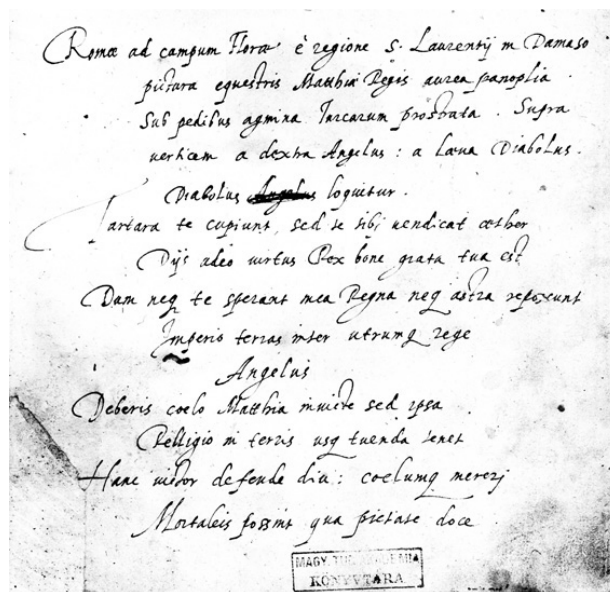 Romæ ad campum Floræ è regione S. Laurentij in Damaso
pictura equestris Matthiæ Regis aurea panoplia
Sub pedibus agmina Turcarum prostrata. Supra
verticem a dextra Angelus: a læva Diabolus.
Diabolus loquitur.
Tartara te cupiunt, sed te sibi vendicat æther
Dijs adeo virtus Rex bone grata tua est
Dum neq te sperant mea Regna neq astra reposcunt
Imperio terras inter utrumq rege
Angelus
Deberis coelo Matthia invicte sed ipsa
Relligio in terris usq tuenda tenet
Hanc victor defende diu: coelumq mereri
Mortaleis possint qua pietate doce
MAGY. TUD. AKADEMIA
KÖNYVTÁRA